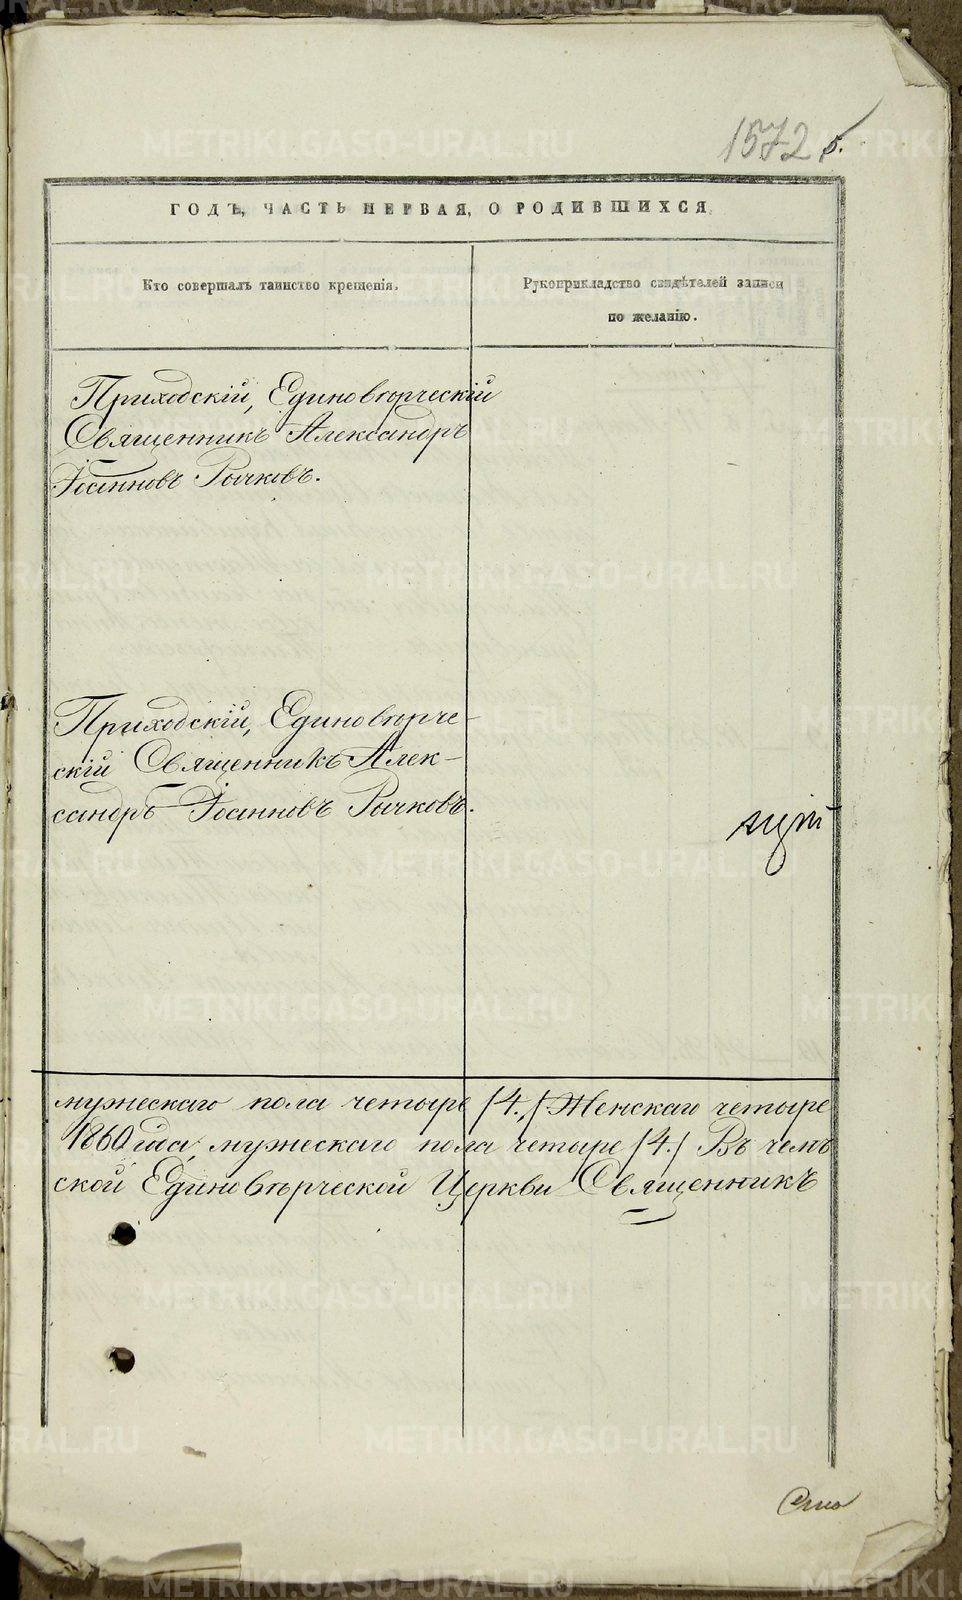 1572
5.
ГОДЪ, ЧАСТЬ ПЕРВАЯ, О РОДИВШИХСЯ
Кто совершалъ таинство крещенія.
Рукоприкладство свидѣтелей записи
по желанію.
Приходскій, Единовѣрческій
Священникъ Александръ
Іоанновъ Рычковъ.
Приходскій, Единовѣрче-
скій Священникъ Алек-
сандръ Іоанновъ Рычковъ.
мужескаго пола четыре /4./ Женскаго четыре
1860 года, мужескаго пола четыре /4./ Въ чемъ
ской Единовѣрческой Церкви Священникъ
METRIKI.GASO-URAL.RU